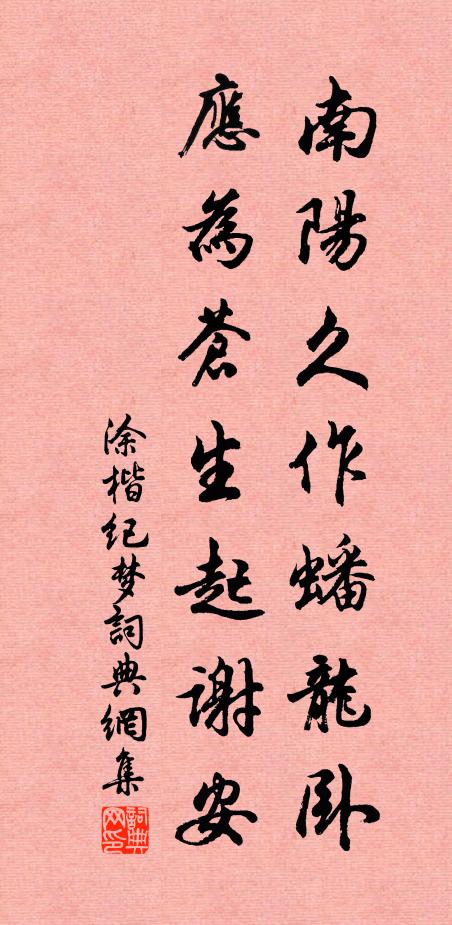 南陽久作蟠龍卧
應為蒼生起谢安
涂楷纪梦詞典網集
詞典网印